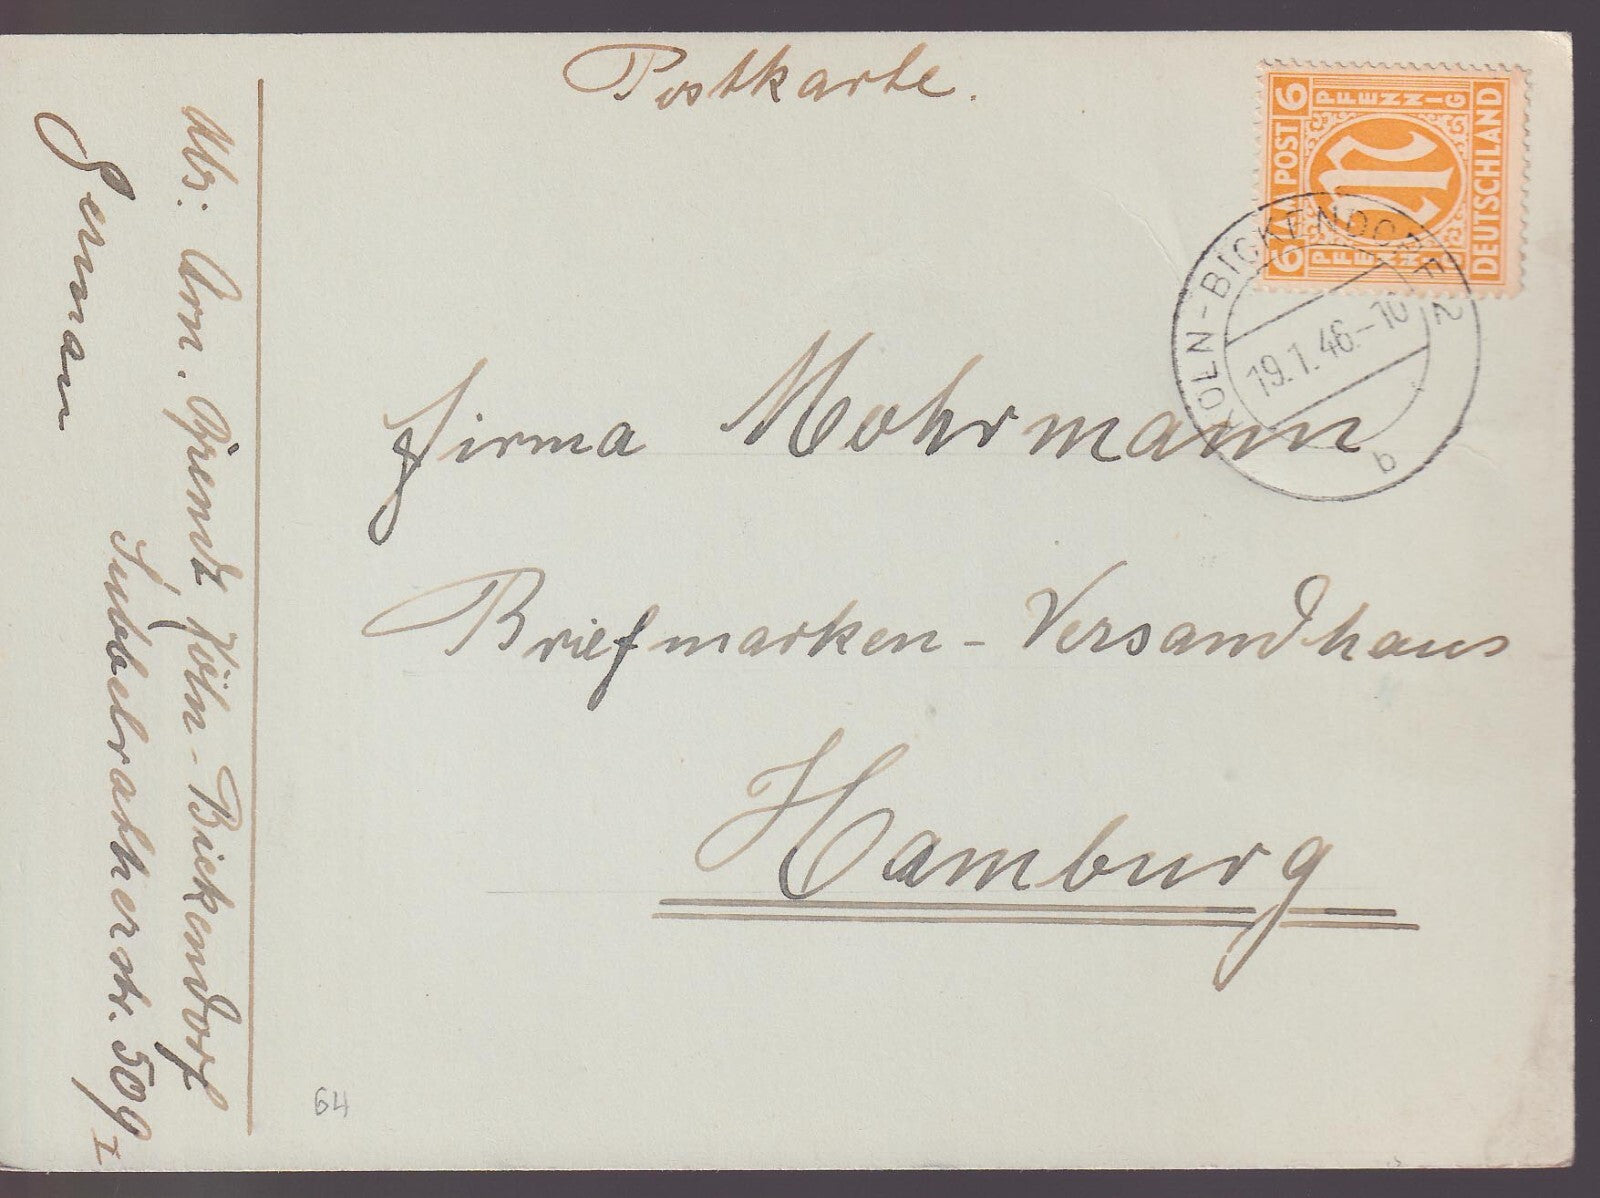 Postkarte.
6 PFENNIG 6
AM POST
DEUTSCHLAND
PFENNIG
KÖLN-BICKENDORF 2
19.1.46.-10
b
Firma Mohrmann
Briefmarken-Versandhaus
Hamburg
Abs: Arn. Köln-Bickendorf
Subbelratherstr. 509 I
German
64